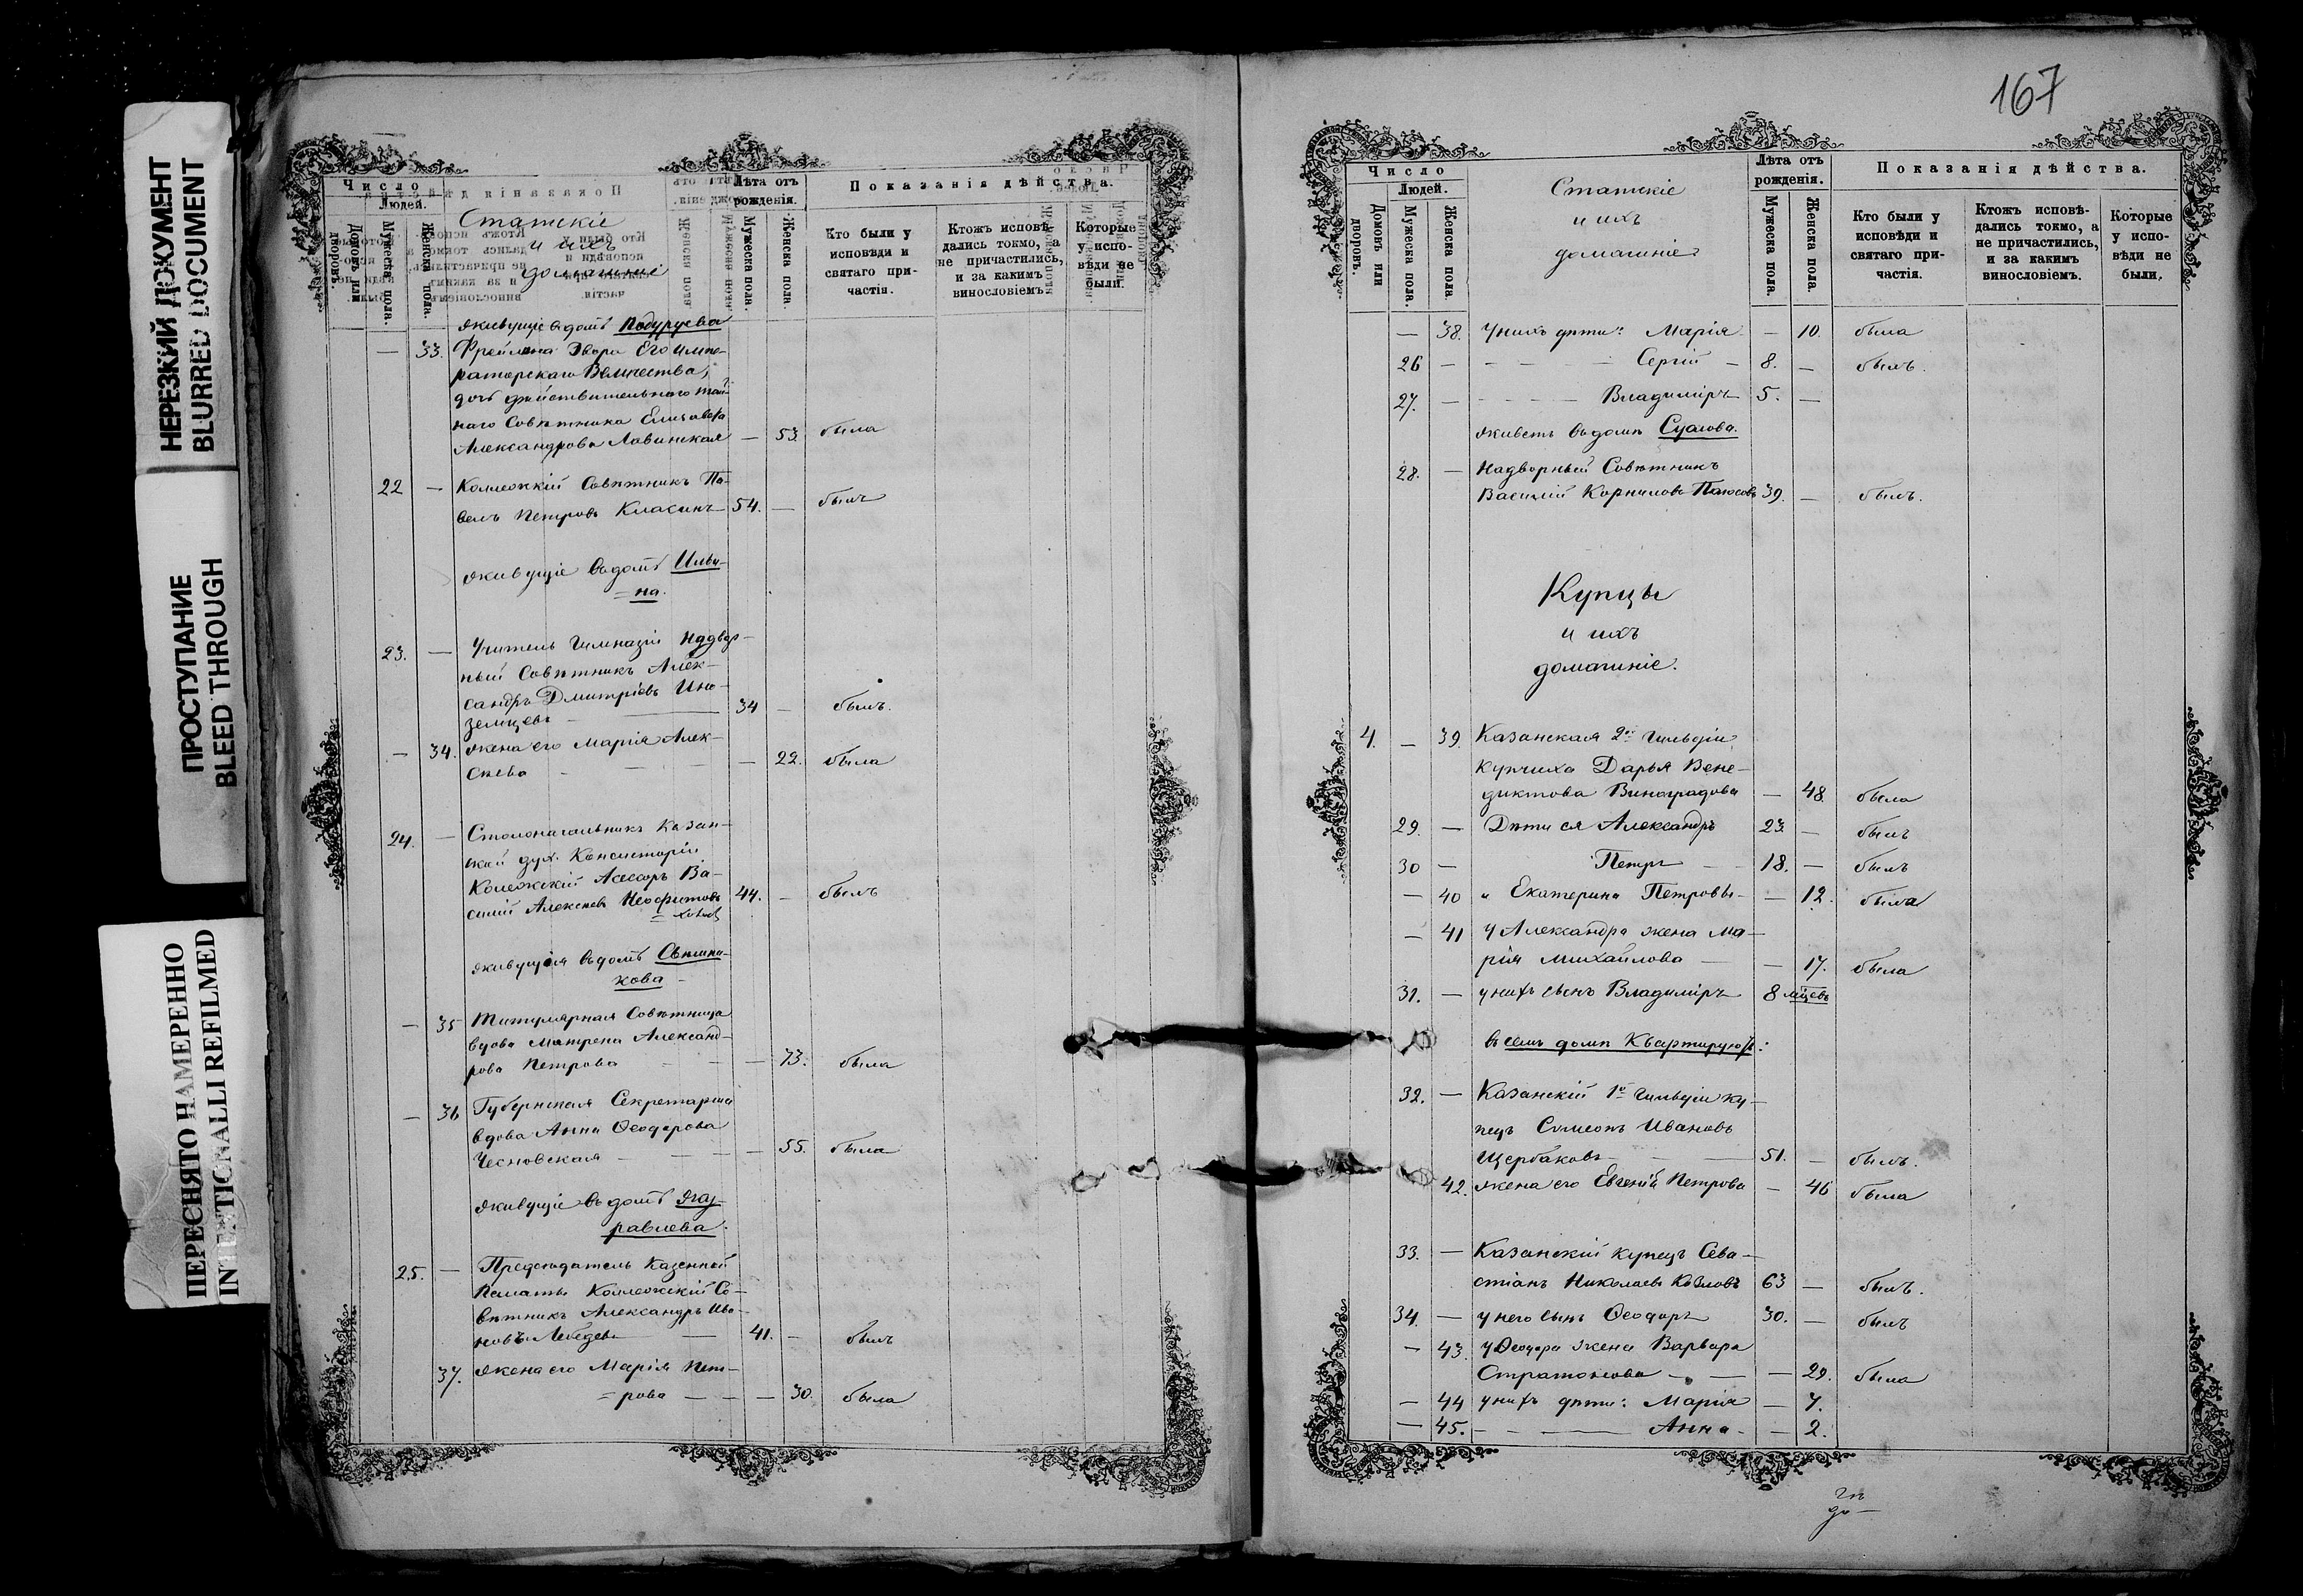 НЕРЕЗКИЙ ДОКУМЕНТ
BLURRED DOCUMENT
ПРОСТУПАНИЕ
BLEED THROUGH
ПЕРЕСНЯТО НАМЕРЕННО
INTENTIONALLI REFILMED
Число
Людей.
Домовъ или дворовъ.
Мужеска пола.
Женска пола.
Статскіе
и ихъ
домашніе
Лѣта отъ рожденія.
Мужеска пола
Женска пола
Показанія дѣйства.
Кто были у исповѣди и святаго причастія.
Ктожъ исповѣдались токмо, а не причастились, и за какимъ винословіемъ.
Которые у исповѣди не были.
живущіе въ домѣ
— 33. Фрейлина Двора Его Импе-
раторскаго Величества,
дочь дѣйствительнаго тай-
наго Совѣтника Елисавета
Александрова Лавинская — 53. была
22 — Коллежскій Совѣтникъ Па-
велъ Петровъ 54. — былъ
живущіе въ домѣ Ильи-
=на.
23. — Учитель Гимназіи Надвор-
ный Совѣтникъ Алек-
сандръ Дмитріевъ Ино-
земцевъ — 34 — былъ.
— 34. жена его Марія Алек-
сѣева — — — 22. была
24. — Столоначальникъ Казан-
ской дух. Консисторіи
Коллежскій Асессоръ Ва-
силій Алексѣевъ 44. — былъ
живущія въ домѣ
кова
— 35 Титулярная Совѣтница
вдова Матрена Александ-
рова Петрова — — — 73. была
— 36 Губернская Секретарша
вдова Анна Ѳеодорова
Чесновская — — — 55. была
живущіе въ домѣ Жу-
равлева.
25. — Предсѣдатель Казенной
Палаты Коллежскій Со-
вѣтникъ Александръ Ива-
новъ Лебедевъ — 41. — былъ
37. жена его Марія Пет-
=рова — — — 30. была
167
Число
Людей.
Домовъ или дворовъ.
Мужеска пола.
Женска пола.
Статскіе
и ихъ
домашніе
Лѣта отъ рожденія.
Мужеска пола.
Женска пола.
Показанія дѣйства.
Кто были у исповѣди и святаго причастія.
Ктожъ исповѣдались токмо, а не причастились, и за какимъ винословіемъ.
Которые у исповѣди не были.
— 38. у нихъ дѣти: Марія — 10. была
26 — — — — Сергій — 8. — былъ.
27. — — — — Владиміръ 5. —
живетъ въ домѣ
28. — Надворный Совѣтникъ
Василій Корниловъ 39. — былъ.
Купцы
и ихъ
домашніе.
4. — 39. Казанская 2ой гильдіи
купчиха Дарья Вене-
диктова Виноградова — 48. была
29. — Дѣти ея Александръ 23. — былъ
30 — Петръ — 18. — былъ
— 40 и Екатерина Петровы — — 12. была
— 41 у Александра жена Ма-
рія Михайлова — — 17. была
31. — у нихъ сынъ Владиміръ 8 мѣсцевъ
въ семъ домѣ Квартируютъ:
32. — Казанскій 1й гильдіи ку-
пецъ Симеонъ Ивановъ
Щербаковъ — 51. — былъ.
42. жена его Евгенія Петрова — 46 была
33. — Казанскій купецъ Сева-
стіанъ Николаевъ Козловъ 63 — былъ.
34. — у него сынъ Ѳеодоръ 30. — былъ
— 43. у Ѳеодора жена Варвара
Стратонова — — — 29. была
— 44 у нихъ дѣти: Марія — 7.
— 45. — — — Анна — — 2.